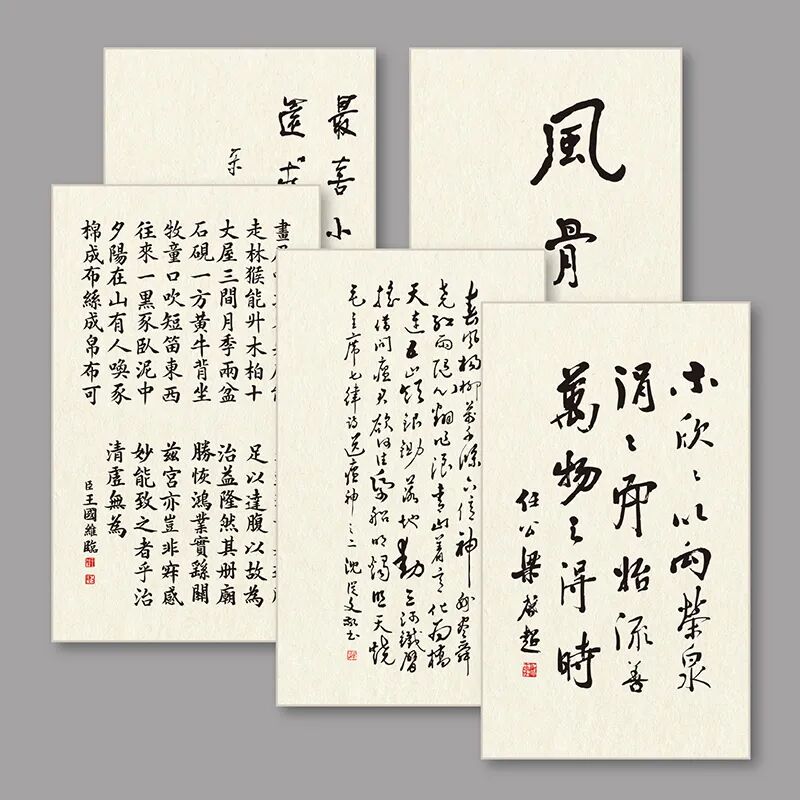 最喜小
還求
風骨
走林猴能升木柏十
大屋三間月季兩盆
石硯一方黃牛背坐
牧童口吹短笛東西
往來一黑豕臥泥中
夕陽在山有人喚豕
棉成布絲成帛布可
足以達腹以故為
治益隆然其册廟
勝恢鴻業實繇開
茲宮亦豈非寤感
妙能致之者乎治
清虛無為
臣王國維臨
春風楊柳萬千條六億神州盡舜
堯紅雨隨心翻作浪青山著意化為橋
天連五嶺銀鋤落地動三河鐵臂
搖借問瘟君欲何往紙船明燭照天燒
毛主席七律詩送瘟神之二 沈從文敬書
木欣〻以向榮泉
涓〻而始流善
萬物之得時
任公梁啟超